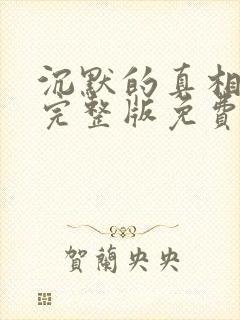 沉默的真相
完整版免費
賀蘭央央